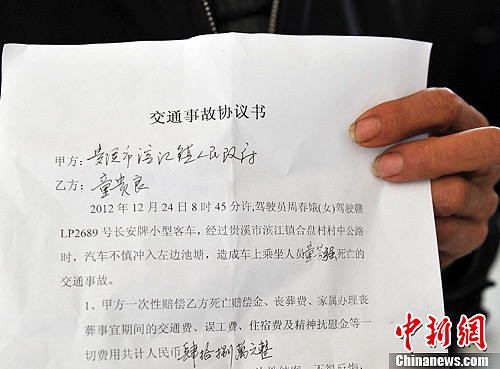 交通事故协议书
甲方：贵溪市滨江镇人民政府
乙方：童贵良
2012 年 12 月 24 日 8 时 45 分许,驾驶员周春娥(女)驾驶赣
LP2689 号长安牌小型客车，经过贵溪市滨江镇合盘村村中公路
时，汽车不慎冲入左边池塘，造成车上乘坐人员童 强死亡的
交通事故。
1、甲方一次性赔偿乙方死亡赔偿金、丧葬费、家属办理丧
葬事宜期间的交通费、误工费、住宿费及精神抚慰金等一
切费用共计人民币肆拾捌萬元整
中新网
Chinanews.com